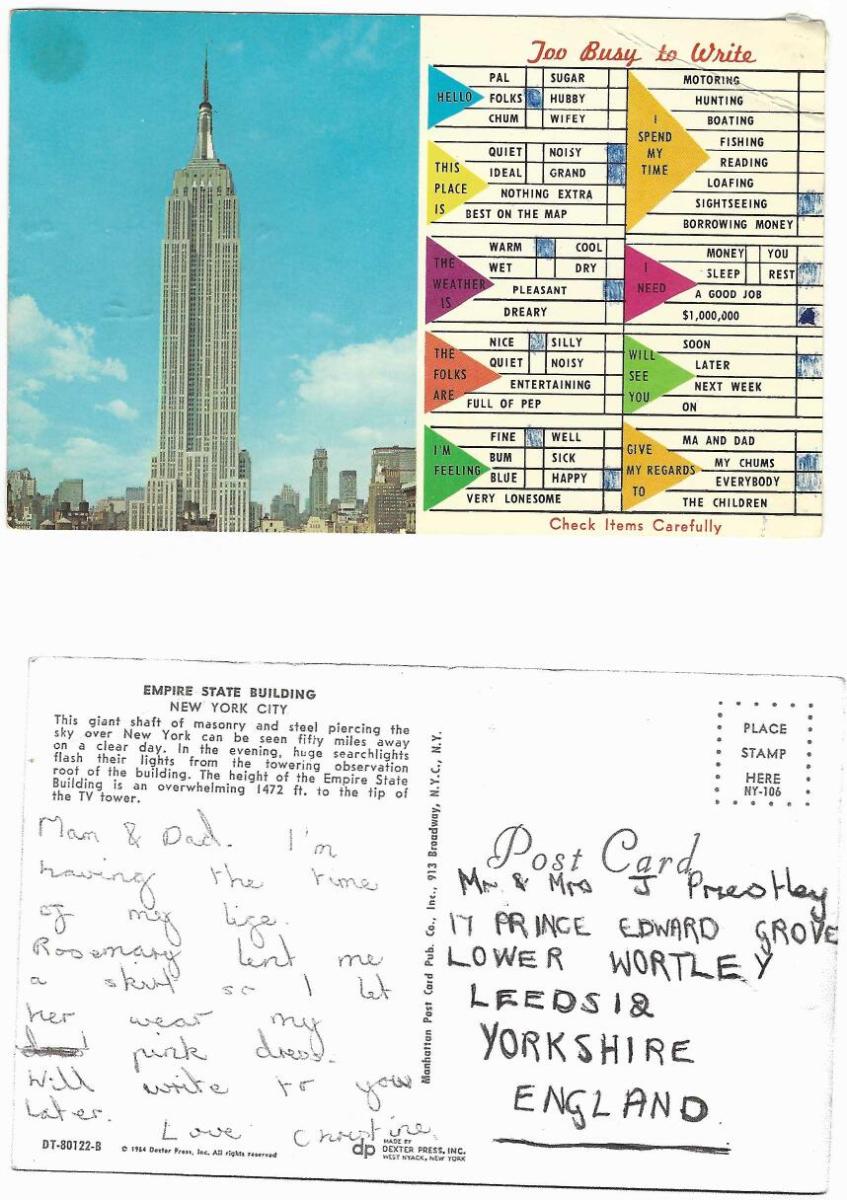 Too Busy to Write
HELLO
PAL SUGAR
FOLKS HUBBY
CHUM WIFEY
THIS
PLACE
IS
QUIET NOISY
IDEAL GRAND
NOTHING EXTRA
BEST ON THE MAP
THE
WEATHER
IS
WARM COOL
WET DRY
PLEASANT
DREARY
THE
FOLKS
ARE
NICE SILLY
QUIET NOISY
ENTERTAINING
FULL OF PEP
I'M
FEELING
FINE WELL
BUM SICK
BLUE HAPPY
VERY LONESOME
I
SPEND
MY
TIME
MOTORING
HUNTING
BOATING
FISHING
READING
LOAFING
SIGHTSEEING
BORROWING MONEY
I
NEED
MONEY YOU
SLEEP REST
A GOOD JOB
$1,000,000
WILL
SEE
YOU
SOON
LATER
NEXT WEEK
ON
GIVE
MY REGARDS
TO
MA AND DAD
MY CHUMS
EVERYBODY
THE CHILDREN
Check Items Carefully
EMPIRE STATE BUILDING
NEW YORK CITY
This giant shaft of masonry and steel piercing the
sky over New York can be seen fifty miles away
on a clear day. In the evening, huge searchlights
flash their lights from the towering observation
root of the building. The height of the Empire State
Building is an overwhelming 1472 ft. to the tip of
the TV tower.
Mam & Dad. I'm
having the time
of my life.
Rosemary lent me
a skirt so I let
her wear my
pink dress.
Will write to you
Later.
Love Christine.
DT-80122-B
© 1964 Dexter Press, Inc. All rights reserved
dp MADE BY
DEXTER PRESS, INC.
WEST NYACK, NEW YORK
Manhattan Post Card Pub. Co., Inc., 913 Broadway, N.Y.C., N.Y.
PLACE
STAMP
HERE
NY-106
Post Card
Mr & Mrs J Priestley
17 PRINCE EDWARD GROVE
LOWER WORTLEY
LEEDS 12
YORKSHIRE
ENGLAND